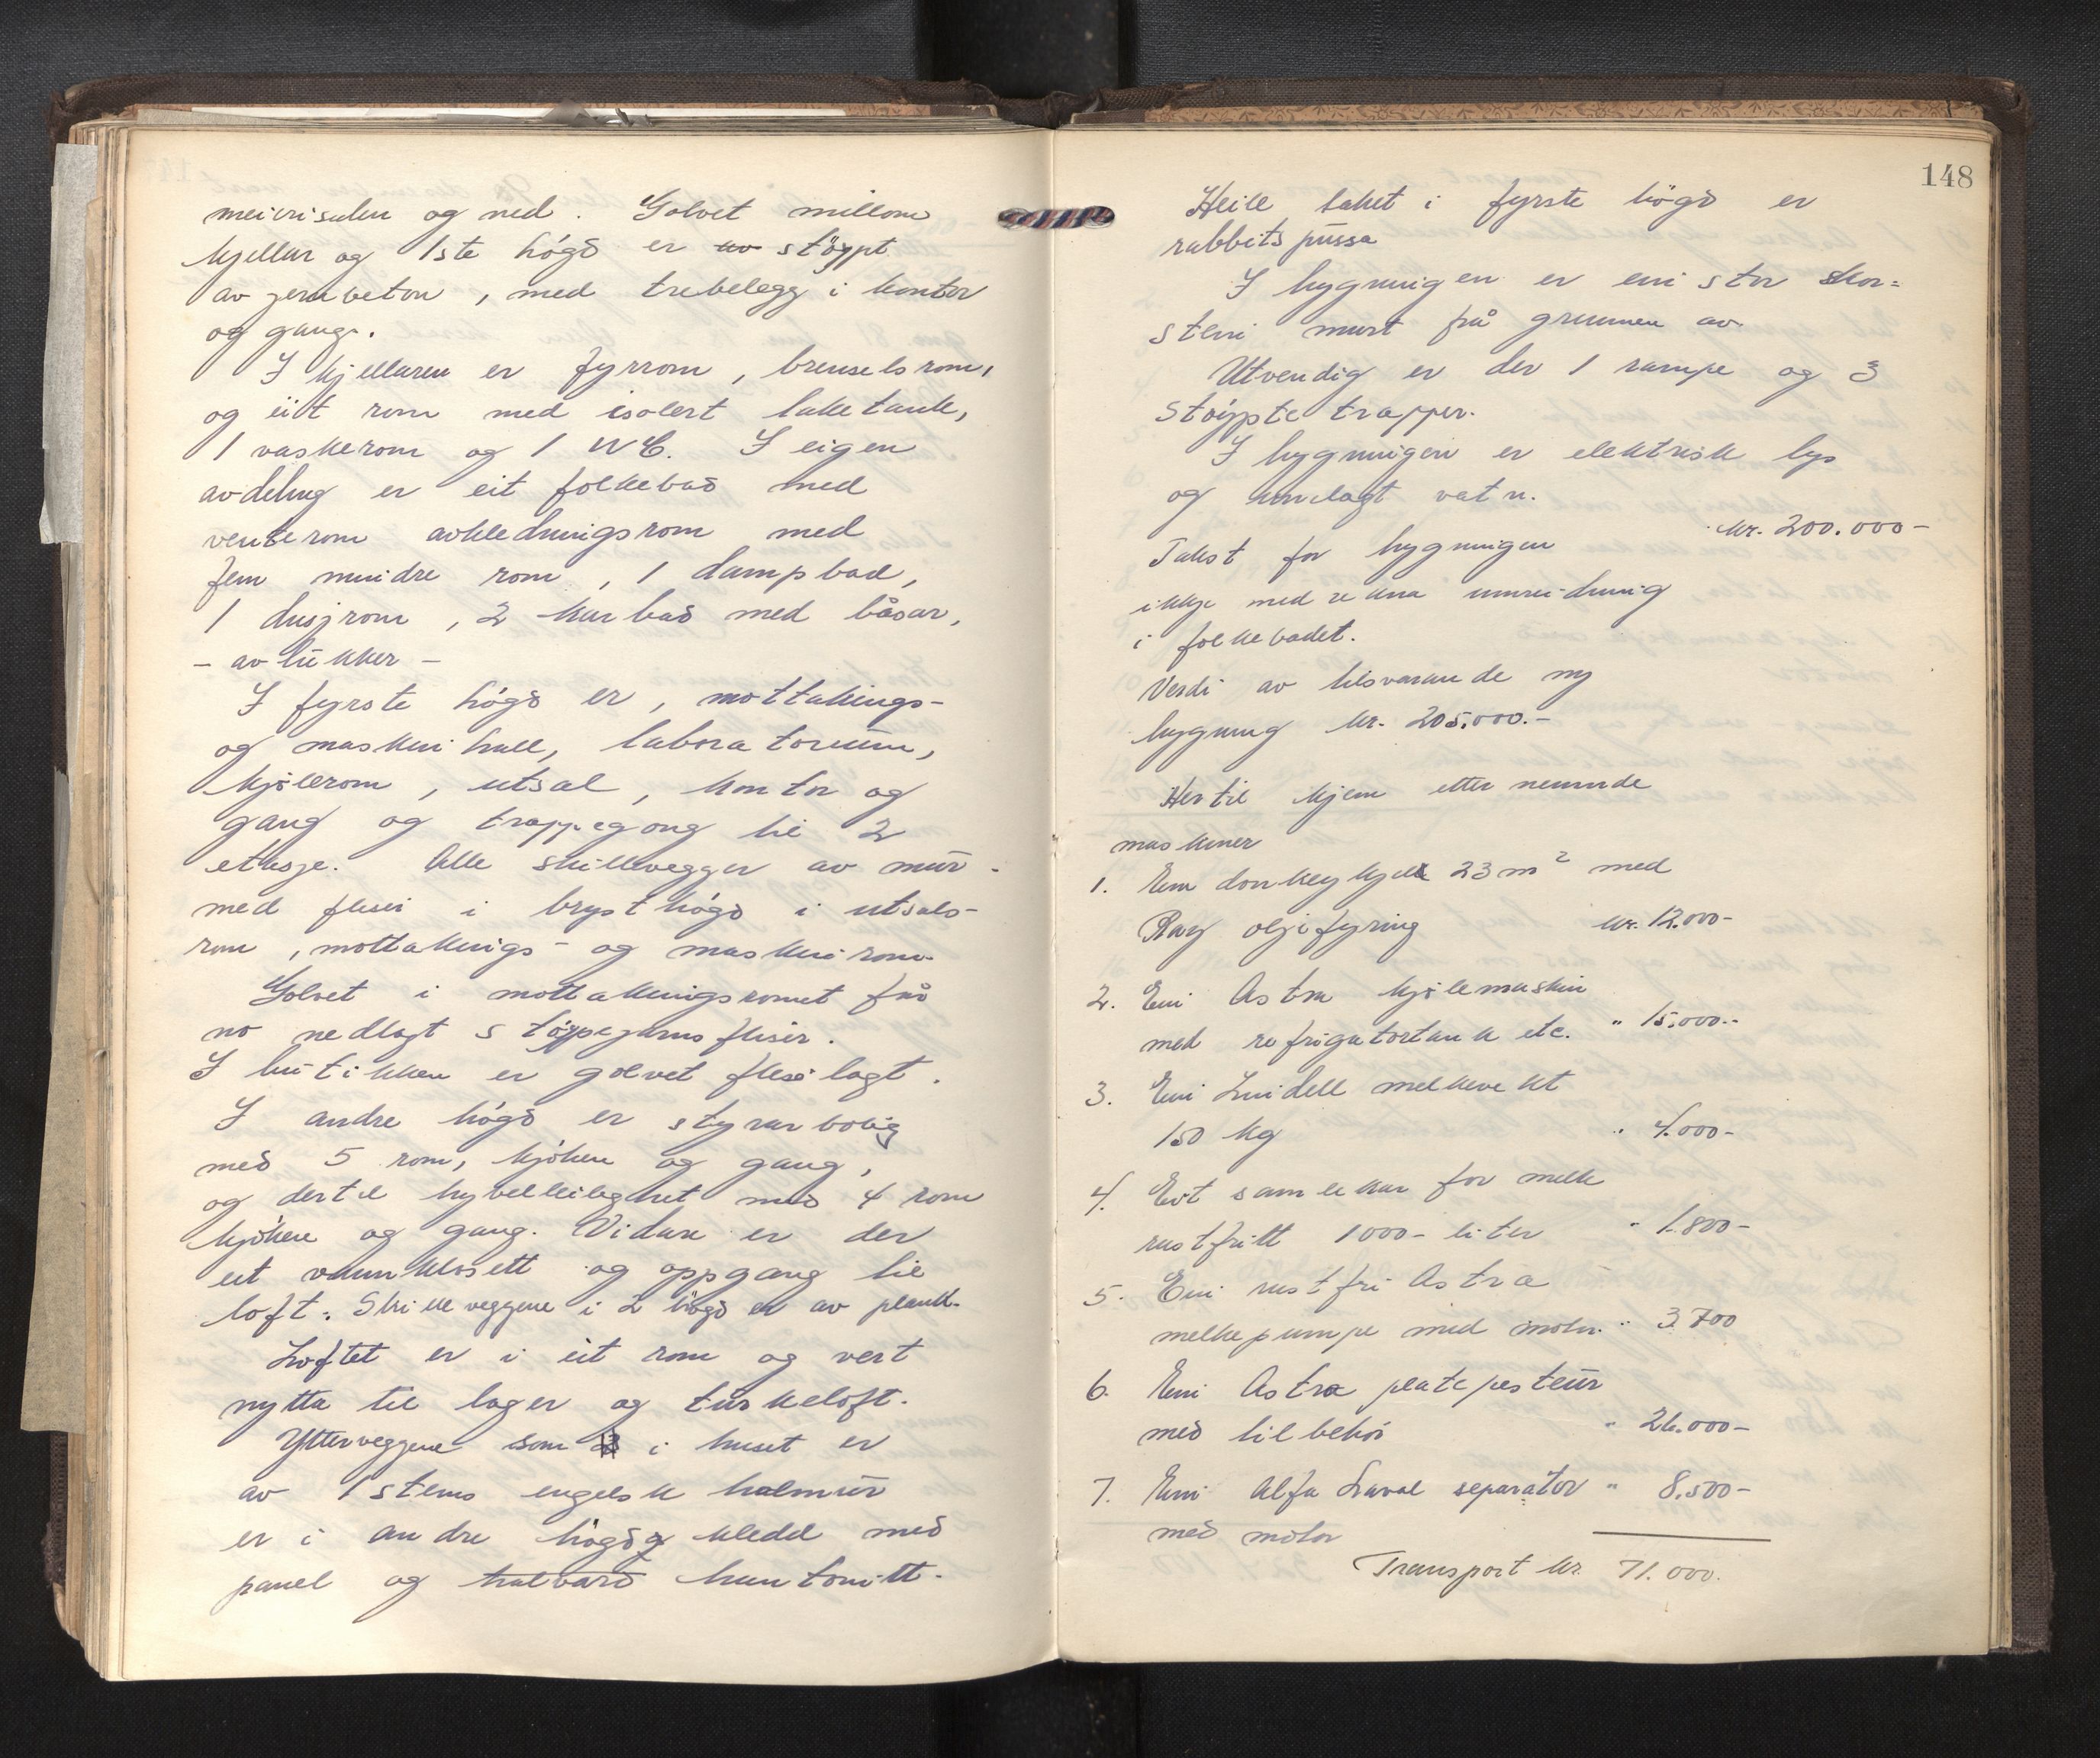 meierisalen og ned. Golvet millom
kjellar og 1ste högd er av støypt
av jernbeton, med trebelegg i kontor
og gange.
I kjellaren er fyrrom, brenselsrom,
og eit rom med isolert laketank,
1 vaskerom og 1 WC. I eigen
avdeling er eit folkebad med
venterom avkledningsrom med
fem mindre rom, 1 dampbad,
1 dusjrom, 2 karbad med båsar,
- avlukker -
I fyrste högd er, mottakings-
og maskinhall, laboratorium,
kjølerom, utsal, kontor og
gang og trappegong til 2
etasje. Alle skillevegger av mur
med fliser i brysthögd i utsals-
rom, mottakings- og maskinrom.
Golvet i mottakingsromet får
no nedlagt støypejernsfliser.
I butikken er golvet fliselagt.
I andre högd er styrarbolig
med 5 rom, kjöken og gang,
og dertil hybelleilighet med 4 rom
kjöken og gang. Vidare er der
eit vannklosett og oppgang til
loft. Skilleveggene i 2 högd er av plank.
Loftet er i eit rom og vert
nytta til lager og turkeloft.
Ytterveggene som i huset er
av 1 stens engelsk holmur
er i andre högd kledd med
panel og halvard huntonitt.
148
Heile taket i fyrste högd er
rabbitspussa
I bygningen er ein stor skor=
stein murt frå grunnen av
Utvendig er der 1 rampe og 3
støypte trapper.
I bygningen er elektrisk lys
og innlagt vatn.
Takst for bygningen kr. 200.000-
ikkje medrekna innreidning
i folkebadet.
Verdi av tilsvarande ny
bygning kr. 205.000.-
Hertil kjem etter nemnde
maskiner
1. Ein donkeykjel 23 m² med
Ray oljefyring kr. 12.000-
2. Ein Astra kjølemaskin
med refrigatortank etc. " 15.000.-
3. Ein Lindell melkevekt
150 kg " 4.000-
4. Eit samlekar for melk
rustfritt 1000- liter " 1.800-
5. Ein rustfri Astra
melkepumpe med motor. " 3.700
6. Ein Astra platepasteur
med tilbehör " 26.000-
7. Ein Alfa Laval separator " 8.500-
med motor
Transport kr. 71.000.